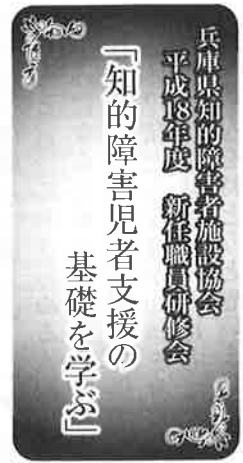 兵庫県知的障害者施設協会
平成18年度　新任職員研修会
「知的障害児者支援の
基礎を学ぶ」